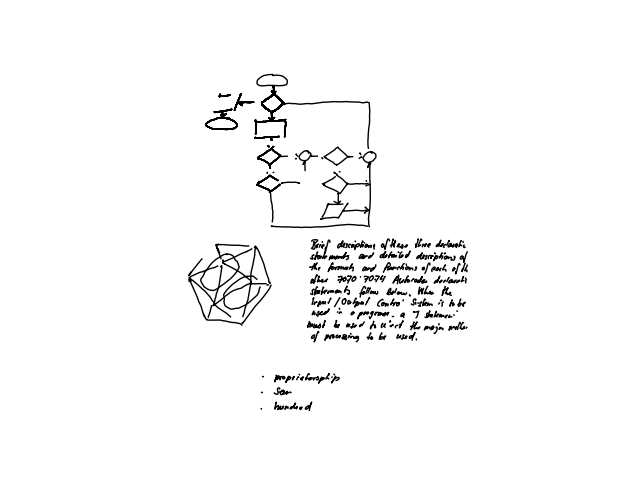 Brief descriptions of these three declarativ
statements and detailed descriptions of
the formats and functions of each of th
other 7070/7074 Autocoder declarati
statements follow below. When the
Input/Output Control System is to be
used in a program, a statement
must be used to the major
of processing to be used.
· proprietorship
· San
· hundred